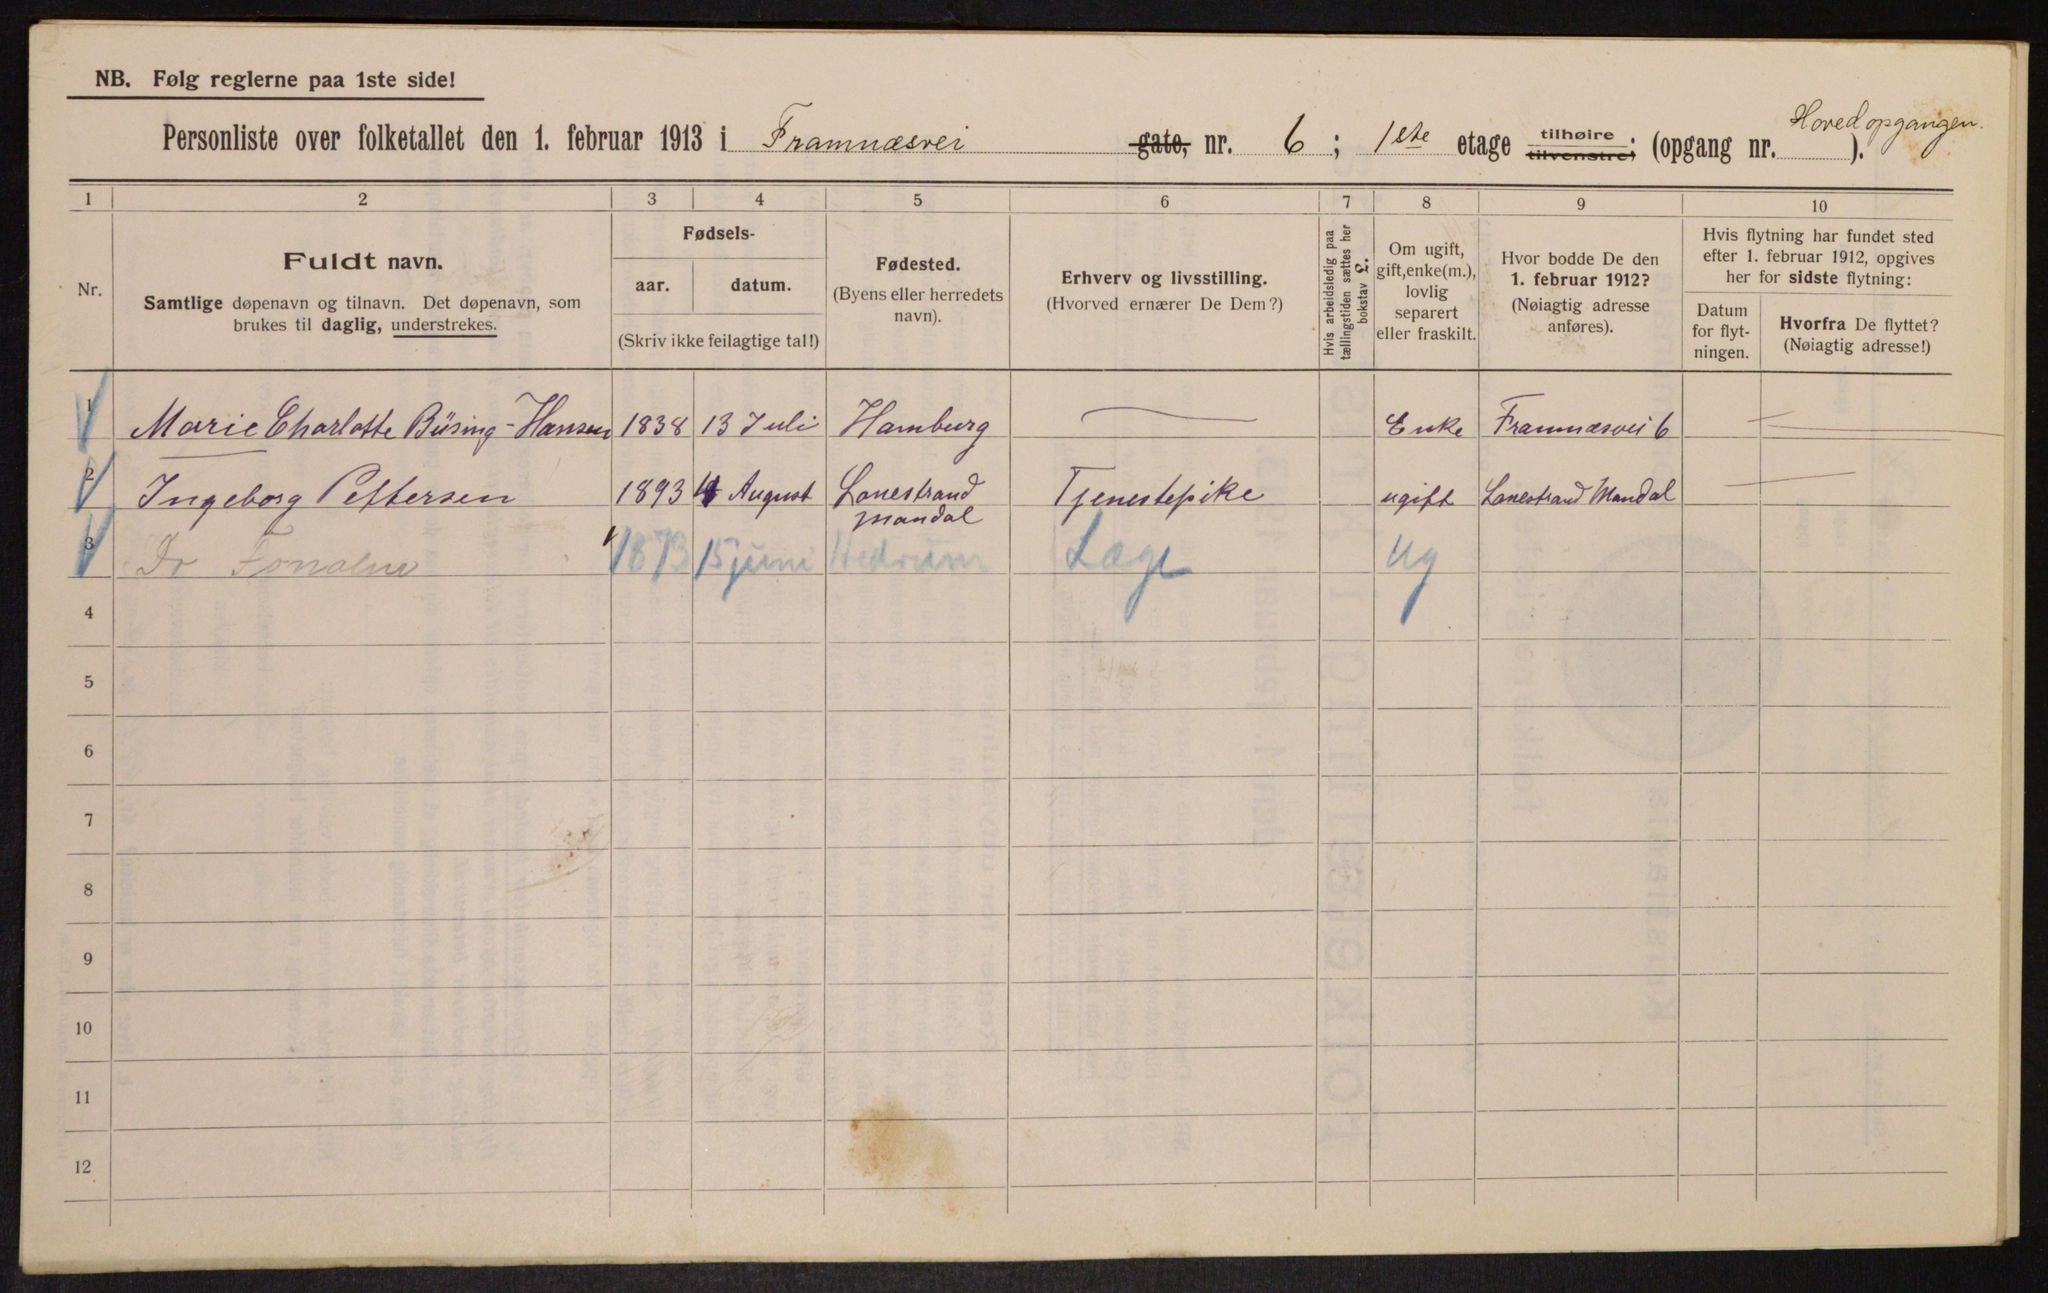 NB. Følg reglerne paa 1ste side!
Personliste over folketallet den 1. februar 1913 i Framnæsvei gate, nr. 6 ; 1ste etage tilhøire tilvenstre; (opgang nr. Hovedopgangen. ).
1 2 3 4 5 6 7 8 9 10
Nr.
Fuldt navn.
Samtlige døpenavn og tilnavn. Det døpenavn, som
brukes til daglig, understrekes.
Fødsels-
aar. datum.
(Skriv ikke feilagtige tal!)
Fødested.
(Byens eller herredets
navn).
Erhverv og livsstilling.
(Hvorved ernærer De Dem?)
Hvis arbeidsledig paa
tællingstiden sættes her
bokstav L.
Om ugift,
gift, enke(m.),
lovlig
separert
eller fraskilt.
Hvor bodde De den
1. februar 1912?
(Nøiagtig adresse
anføres).
Hvis flytning har fundet sted
efter 1. februar 1912, opgives
her for sidste flytning:
Datum
for flyt-
ningen.
Hvorfra De flyttet?
(Nøiagtig adresse!)
1 Marie Charlotte Büsing-Hansen 1838 13 Juli Hamburg — Enke Framnæsvei 6
2 Ingeborg Pettersen 1893 4 August Lonestrand Mandal Tjenestepike ugift Lonestrand Mandal
3 Dr 1873 15 juni Hedrum Læge ug
4
5
6
7
8
9
10
11
12